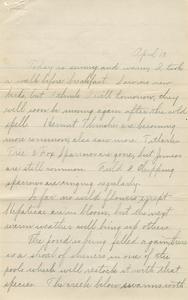 April 19
Today is sunny and warm. I took
a walk before breakfast. I saw no new
birds, but I think I will tomorrow, they
will soon be moving again after the cold
spell. Hermit Thrushes are becoming
more common, also saw more Titlarks.
Tree & Fox Sparrows are gone, but Juncos
are still common. Field & Chipping
sparrows are singing regularly.
So far no wild flowers except
Hepaticas are in bloom, but the next
warm weather will bring up others.
The pond is being filled again there
is a shoal of shiners in one of the
pools which will restock it with that
species. The creek below swarms with